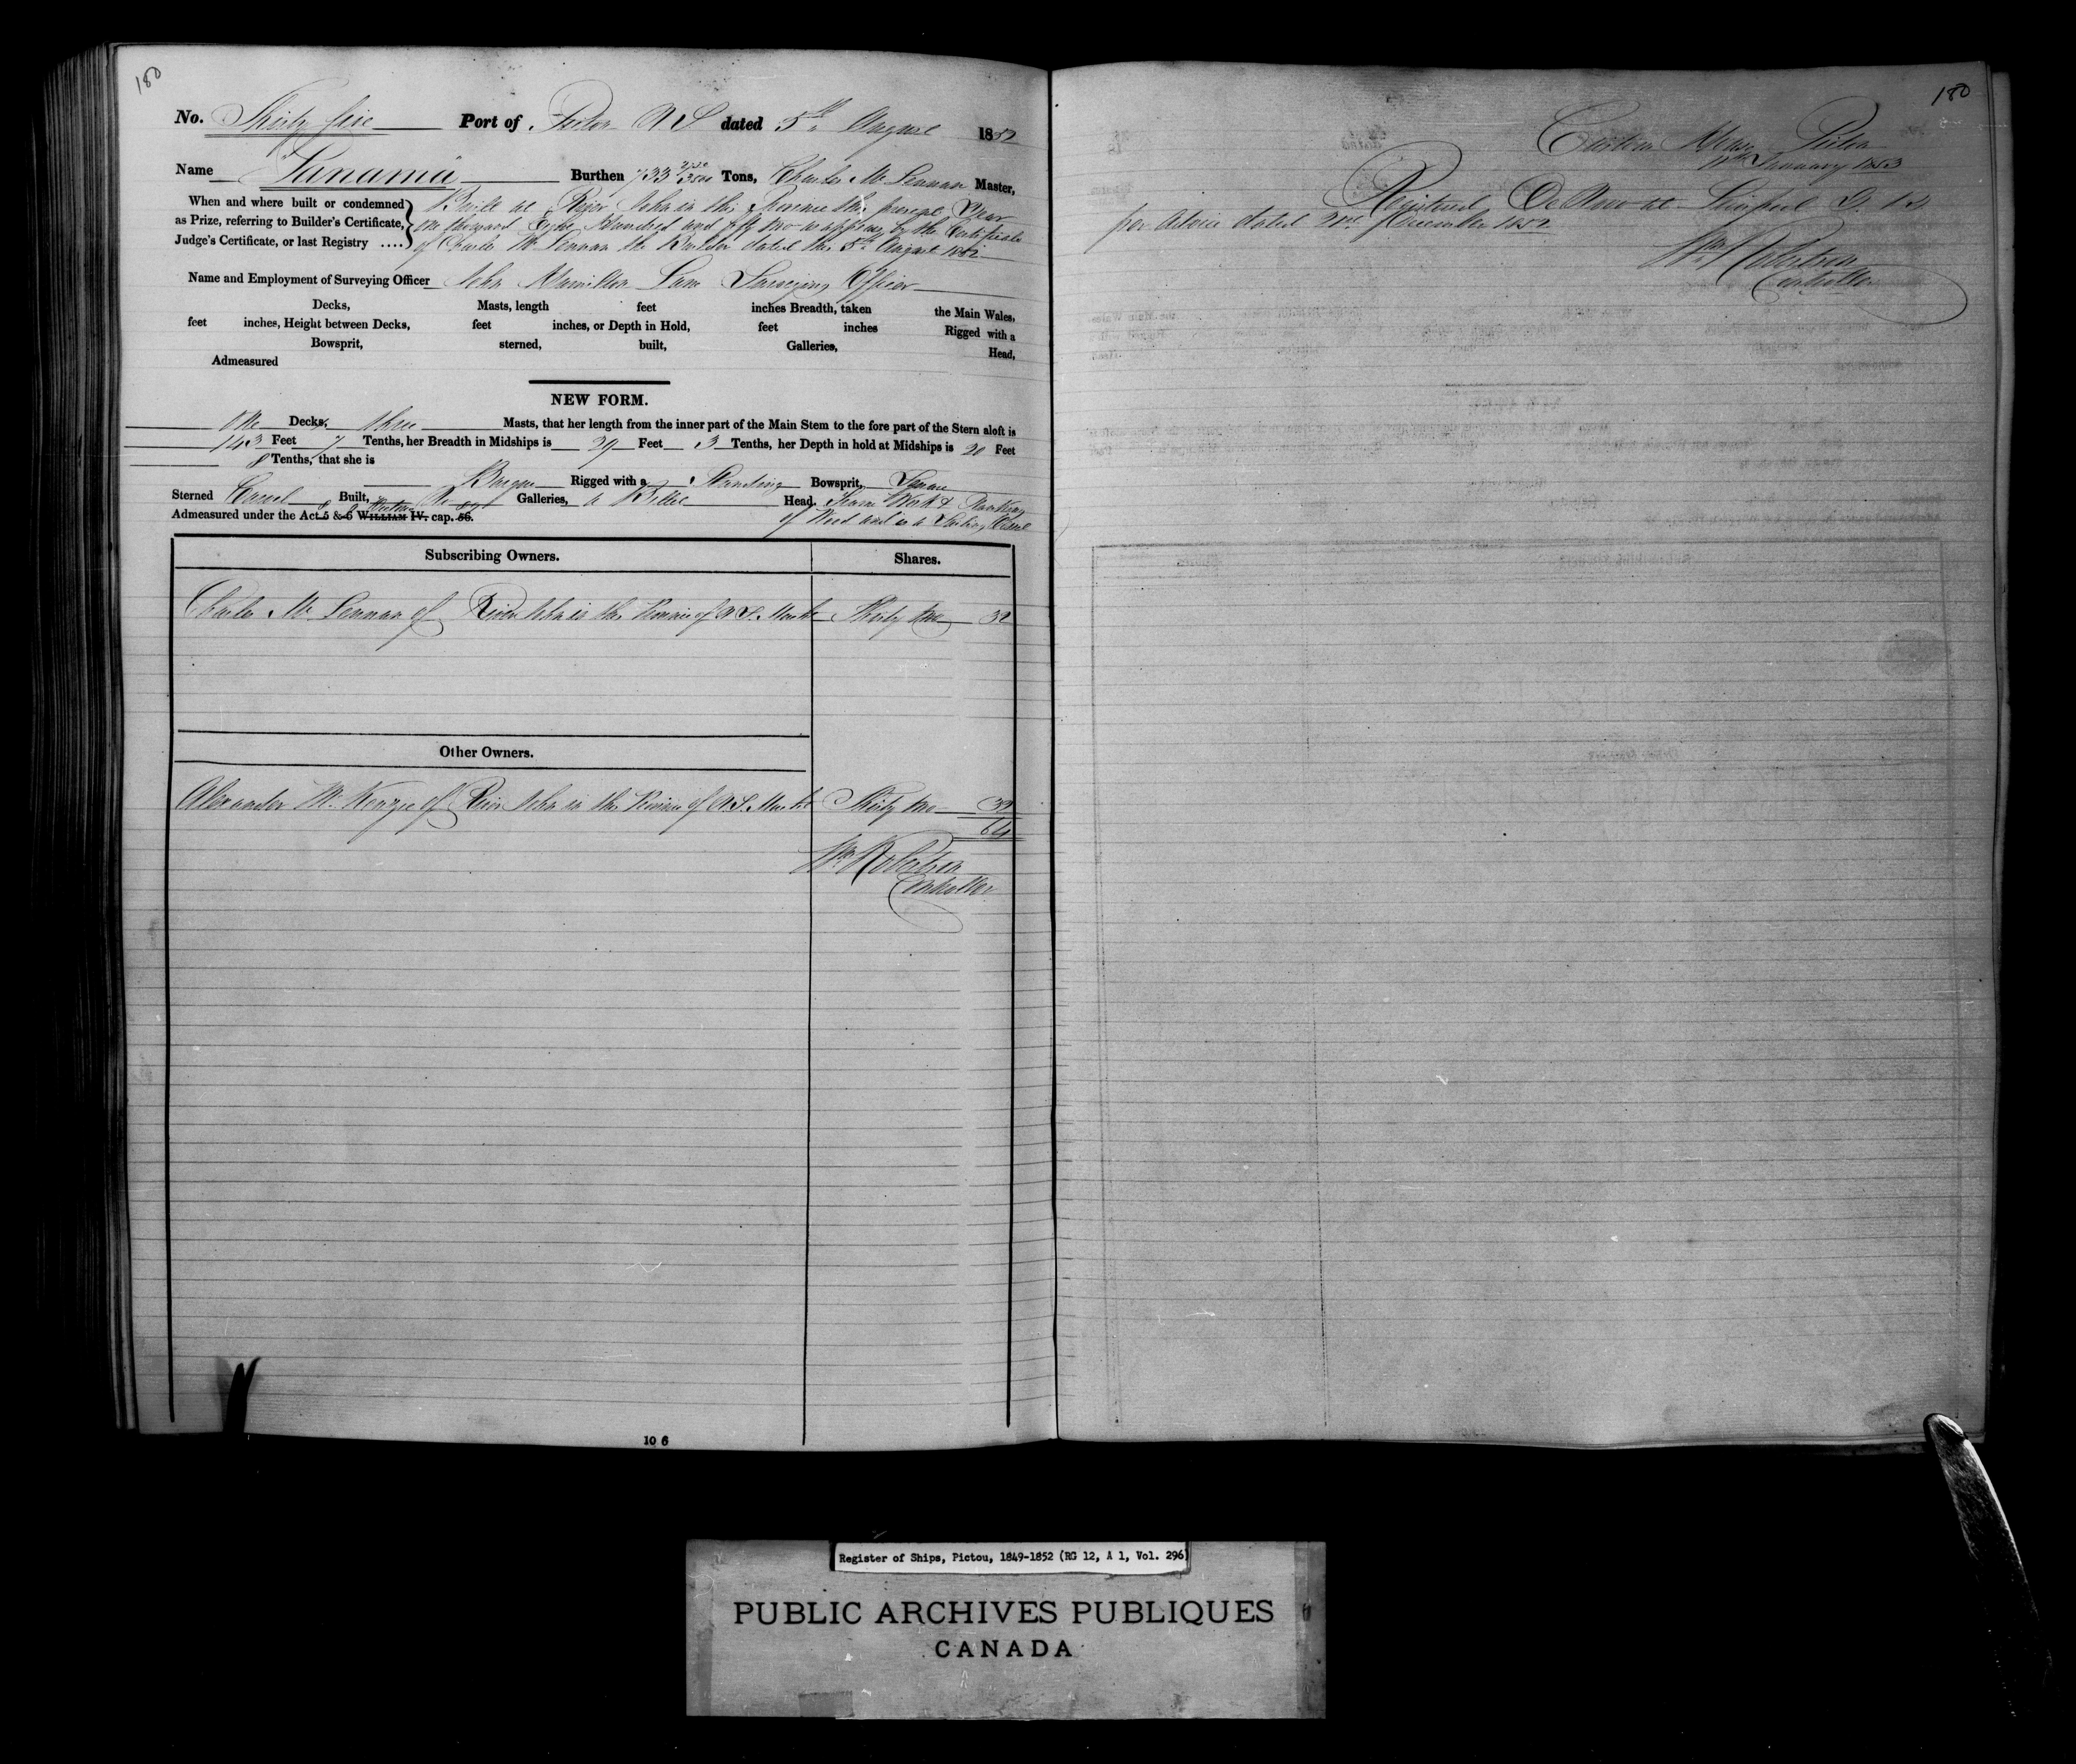 180
No. Thirty five Port of Pictou N S dated 5th August 1852
Name Panama Burthen 733 Tons, Charles McLennan Master,
When and where built or condemned
as Prize, referring to Builder's Certificate,
Judge's Certificate, or last Registry ....
Built at River John in this Province this present Year
One thousand Eight Hundred and fifty two as appears by the Certificate
of Charles McLennan the Builder dated the 5th August 1852
Name and Employment of Surveying Officer John Hamilton Lane Surveying Officer
Decks, Masts, length feet inches Breadth, taken the Main Wales,
feet inches, Height between Decks, feet inches, or Depth in Hold, feet inches Rigged with a
Bowsprit, sterned, built, Galleries, Head,
Admeasured
NEW FORM.
One Decks, three Masts, that her length from the inner part of the Main Stem to the fore part of the Stern aloft is
143 Feet 7 Tenths, her Breadth in Midships is 29 Feet 3 Tenths, her Depth in hold at Midships is 20 Feet
8 Tenths, that she is
Barque Rigged with a Standing Bowsprit, Square
Sterned Carvel Built, No Galleries, a Billet Head. Frame Work & Planking
Admeasured under the Act 5 & 6 WILLIAM IV. cap. 56.
8 9 Victoria 89
of Wood and is a Sailing Vessel
Subscribing Owners. Shares.
Charles McLennan of River John in the Province of N.S. Thirty two 32
Other Owners.
Alexander McKenzie of River John in the Province of N.S. Thirty two 32
64
Wm Robertson
Controller
10 6
180
Custom House Pictou
January 1853
Registered De Novo at Liverpool
per Advice dated December 1852
Wm Robertson
Controller
Register of Ships, Pictou, 1849-1852 (RG 12, A 1, Vol. 296)
PUBLIC ARCHIVES PUBLIQUES
CANADA